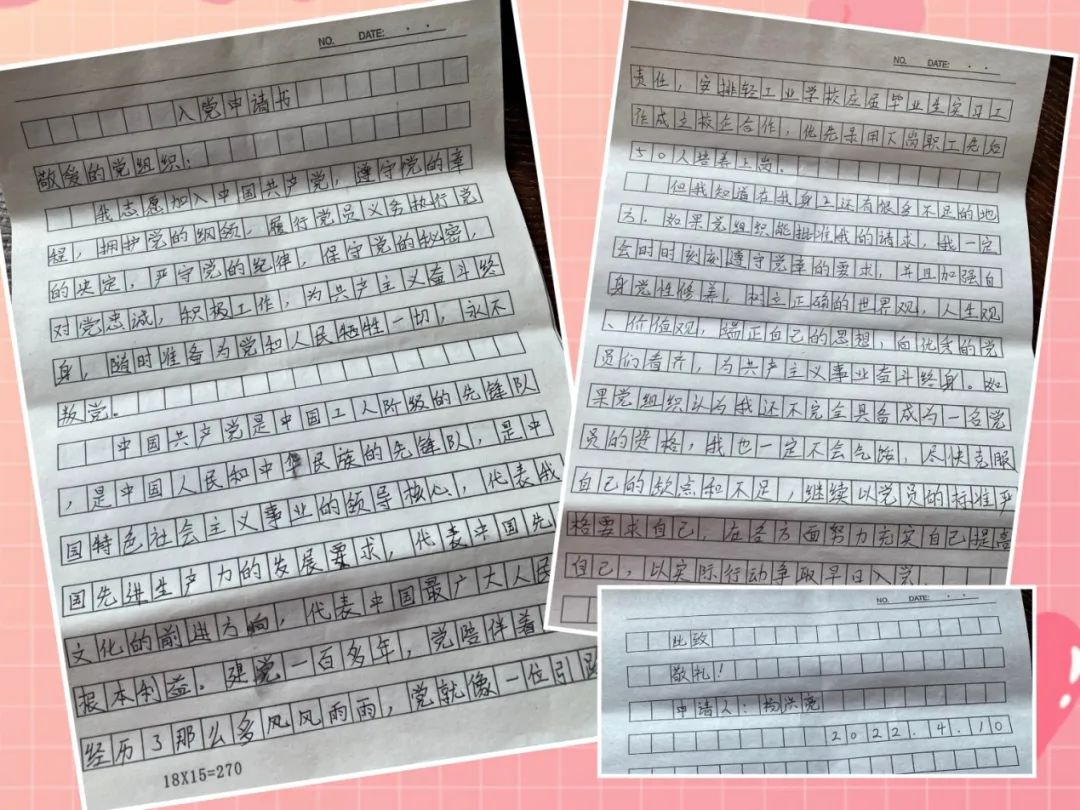 NO. DATE: . .
入党申请书
敬爱的党组织:
我志愿加入中国共产党,遵守党的章
程,拥护党的纲领,履行党员义务执行党
的决定,严守党的纪律,保守党的秘密,
对党忠诚,积极工作,为共产主义奋斗终
身,随时准备为党和人民牺牲一切,永不
叛党。
中国共产党是中国工人阶级的先锋队
,是中国人民和中华民族的先锋队,是中
国特色社会主义事业的领导核心,代表我
国先进生产力的发展要求,代表中国先
文化的前进方响,代表中国最广大人民
根本利益。建党一百多年,党陪伴着
经历了那么多风风雨雨,党就像一位引
18X15=270
NO. DATE: . .
责任,安排轻工业学校应届毕业生实习工
作成立校企合作,优先录用下岗职工先后
50人培养上岗.
但我知道在我身上还有很多不足的地
方.如果党组织能批准我的请求,我一定
会时时刻刻遵守党章的要求,并且加强自
身党性修养,树立正确的世界观,人生观
、价值观,端正自己的思想,向优秀的党
员们看齐,为共产主义事业奋斗终身。如
果党组织认为我还不完全具备成为一名党
员的资格,我也一定不会气馁,尽快克服
自己的缺点和不足,继续以党员的标准严
格要求自己,在各方面努力充实自己提高
自己,以实际行动争取早日入党.
NO. DATE: . .
此致
敬礼!
申请人:杨洪亮
2022.4.10